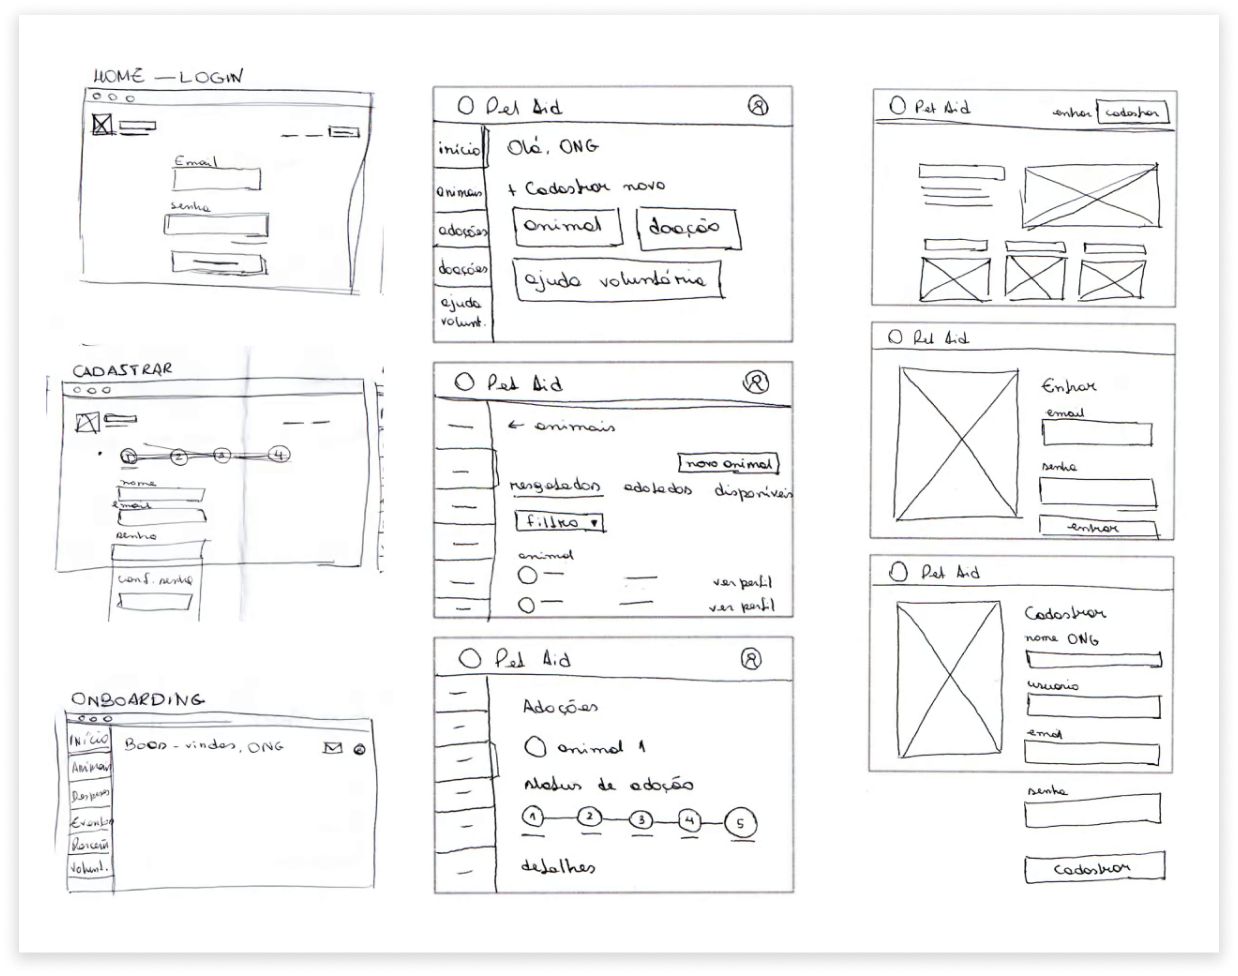 HOME — LOGIN
Email
senha
CADASTRAR
1 2 3 4
nome
email
senha
conf. senha
ONBOARDING
INÍCIO
Animais
Despesas
Eventos
volunt.
Boas-vindas, ONG
Pet Aid
início
animais
adoções
doações
ajuda
volunt.
Olá, ONG
+ Cadastrar novo
animal doação
ajuda voluntária
Pet Aid
← animais
novo animal
resgatados adotados disponíveis
filtro ▾
animal
ver perfil
ver perfil
Pet Aid
Adoções
animal 1
status de adoção
1 2 3 4 5
detalhes
Pet Aid
entrar cadastrar
Pet Aid
Entrar
email
senha
entrar
Pet Aid
Cadastrar
nome ONG
usuario
email
senha
cadastrar